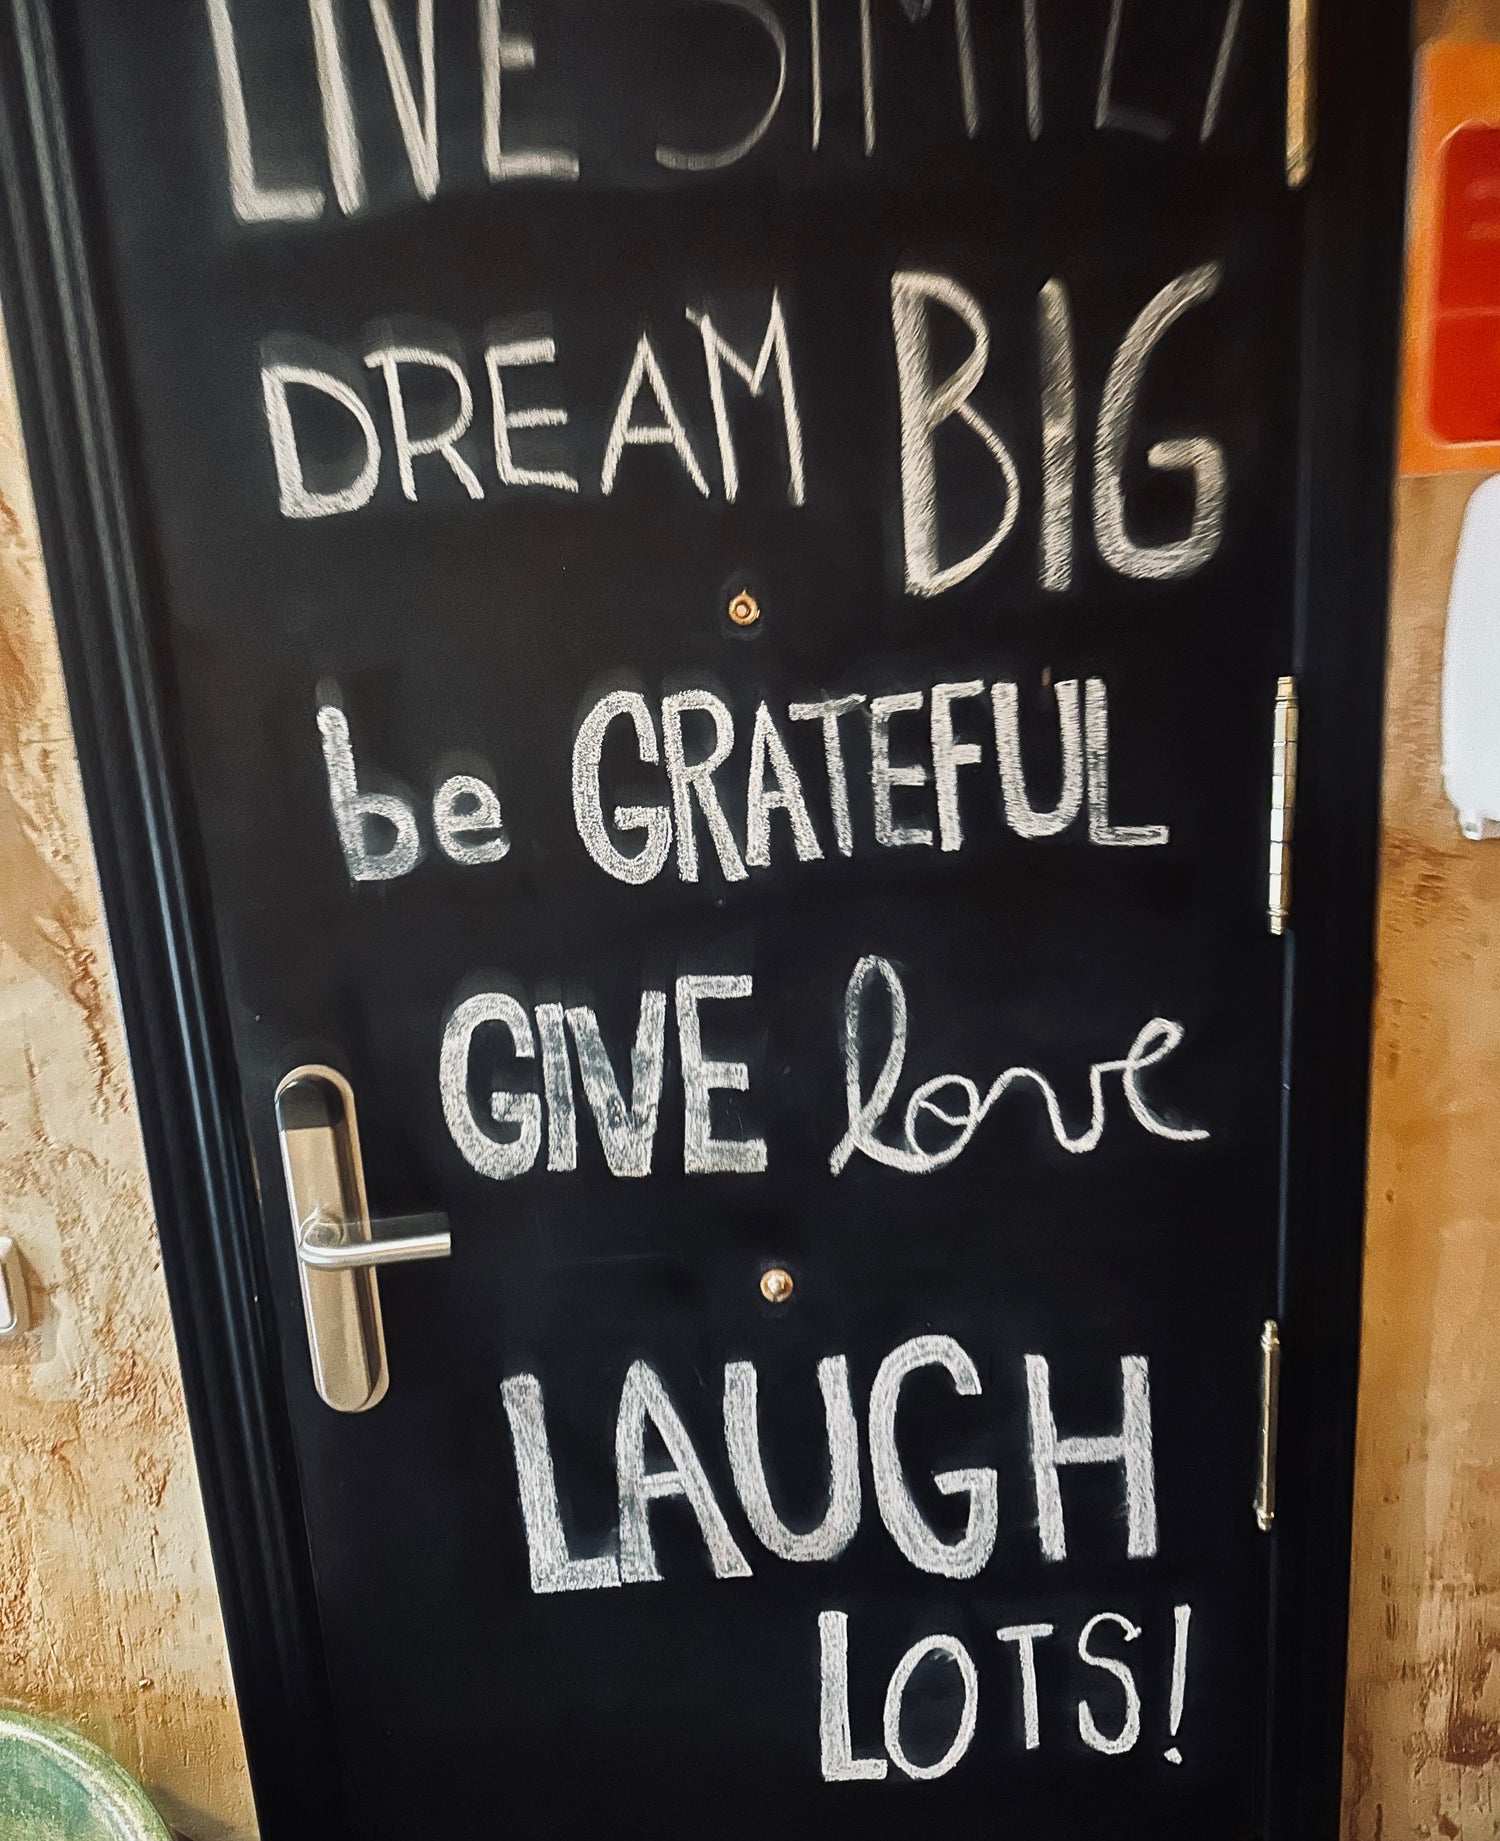 LIVE SIMPLY
DREAM BIG
be GRATEFUL
GIVE love
LAUGH
LOTS!